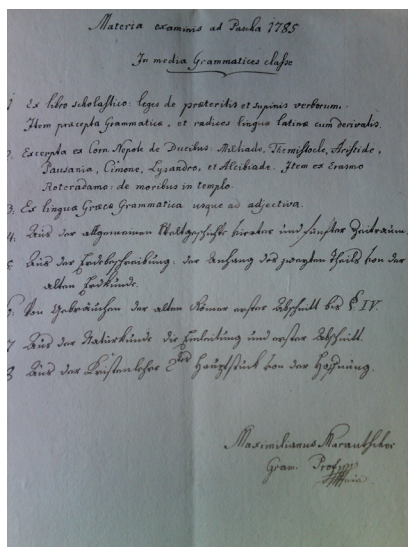 Materia examinis ad Pascha 1785
In media Grammatices classe
1 Ex libro scholastico: leges de præteritis et supinis verborum.
Item præcepta Grammaticæ, et radices linguæ latinæ cum derivatis.
2. Excerpta ex Corn. Nepote de Ducibus: Miltiade, Themistocle, Aristide,
Pausania, Cimone, Lysandro, et Alcibiade. Item ex Erasmo
Roterodamo: de moribus in templo.
3. Ex lingua Græca Grammatica usque ad adjectiva.
4. Aus der allgemeinen Weltgeschichte vierter und fünfter Zeitraum.
5 Aus der Erdbeschreibung: der Anhang des zweyten Theils von der
alten Erdkunde.
6. Von Gebräuchen der alten Römer erster Abschnitt bis § IV.
7 Aus der Naturkunde die Einleitung und erster Abschnitt.
8 Aus der Kristenlehre Hauptstück von der Hoffnung.
Maximilianus
Gram. Profeſſor